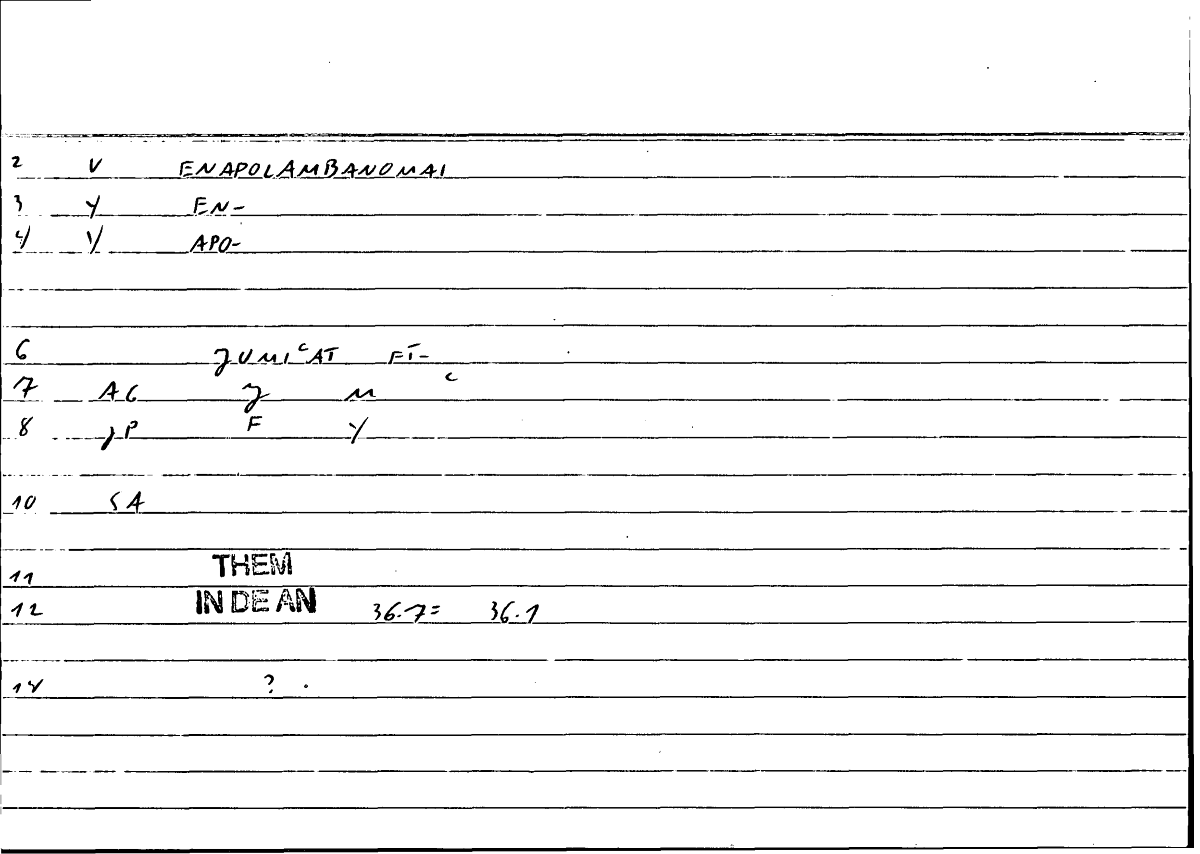 2 V ENAPOLAMBANOMAI
3 Y EN-
4 Y APO-
6
7 AG
8 F Y
10 SA
11 THEM
12 IN DE AN 36.7= 36.1
14 ?